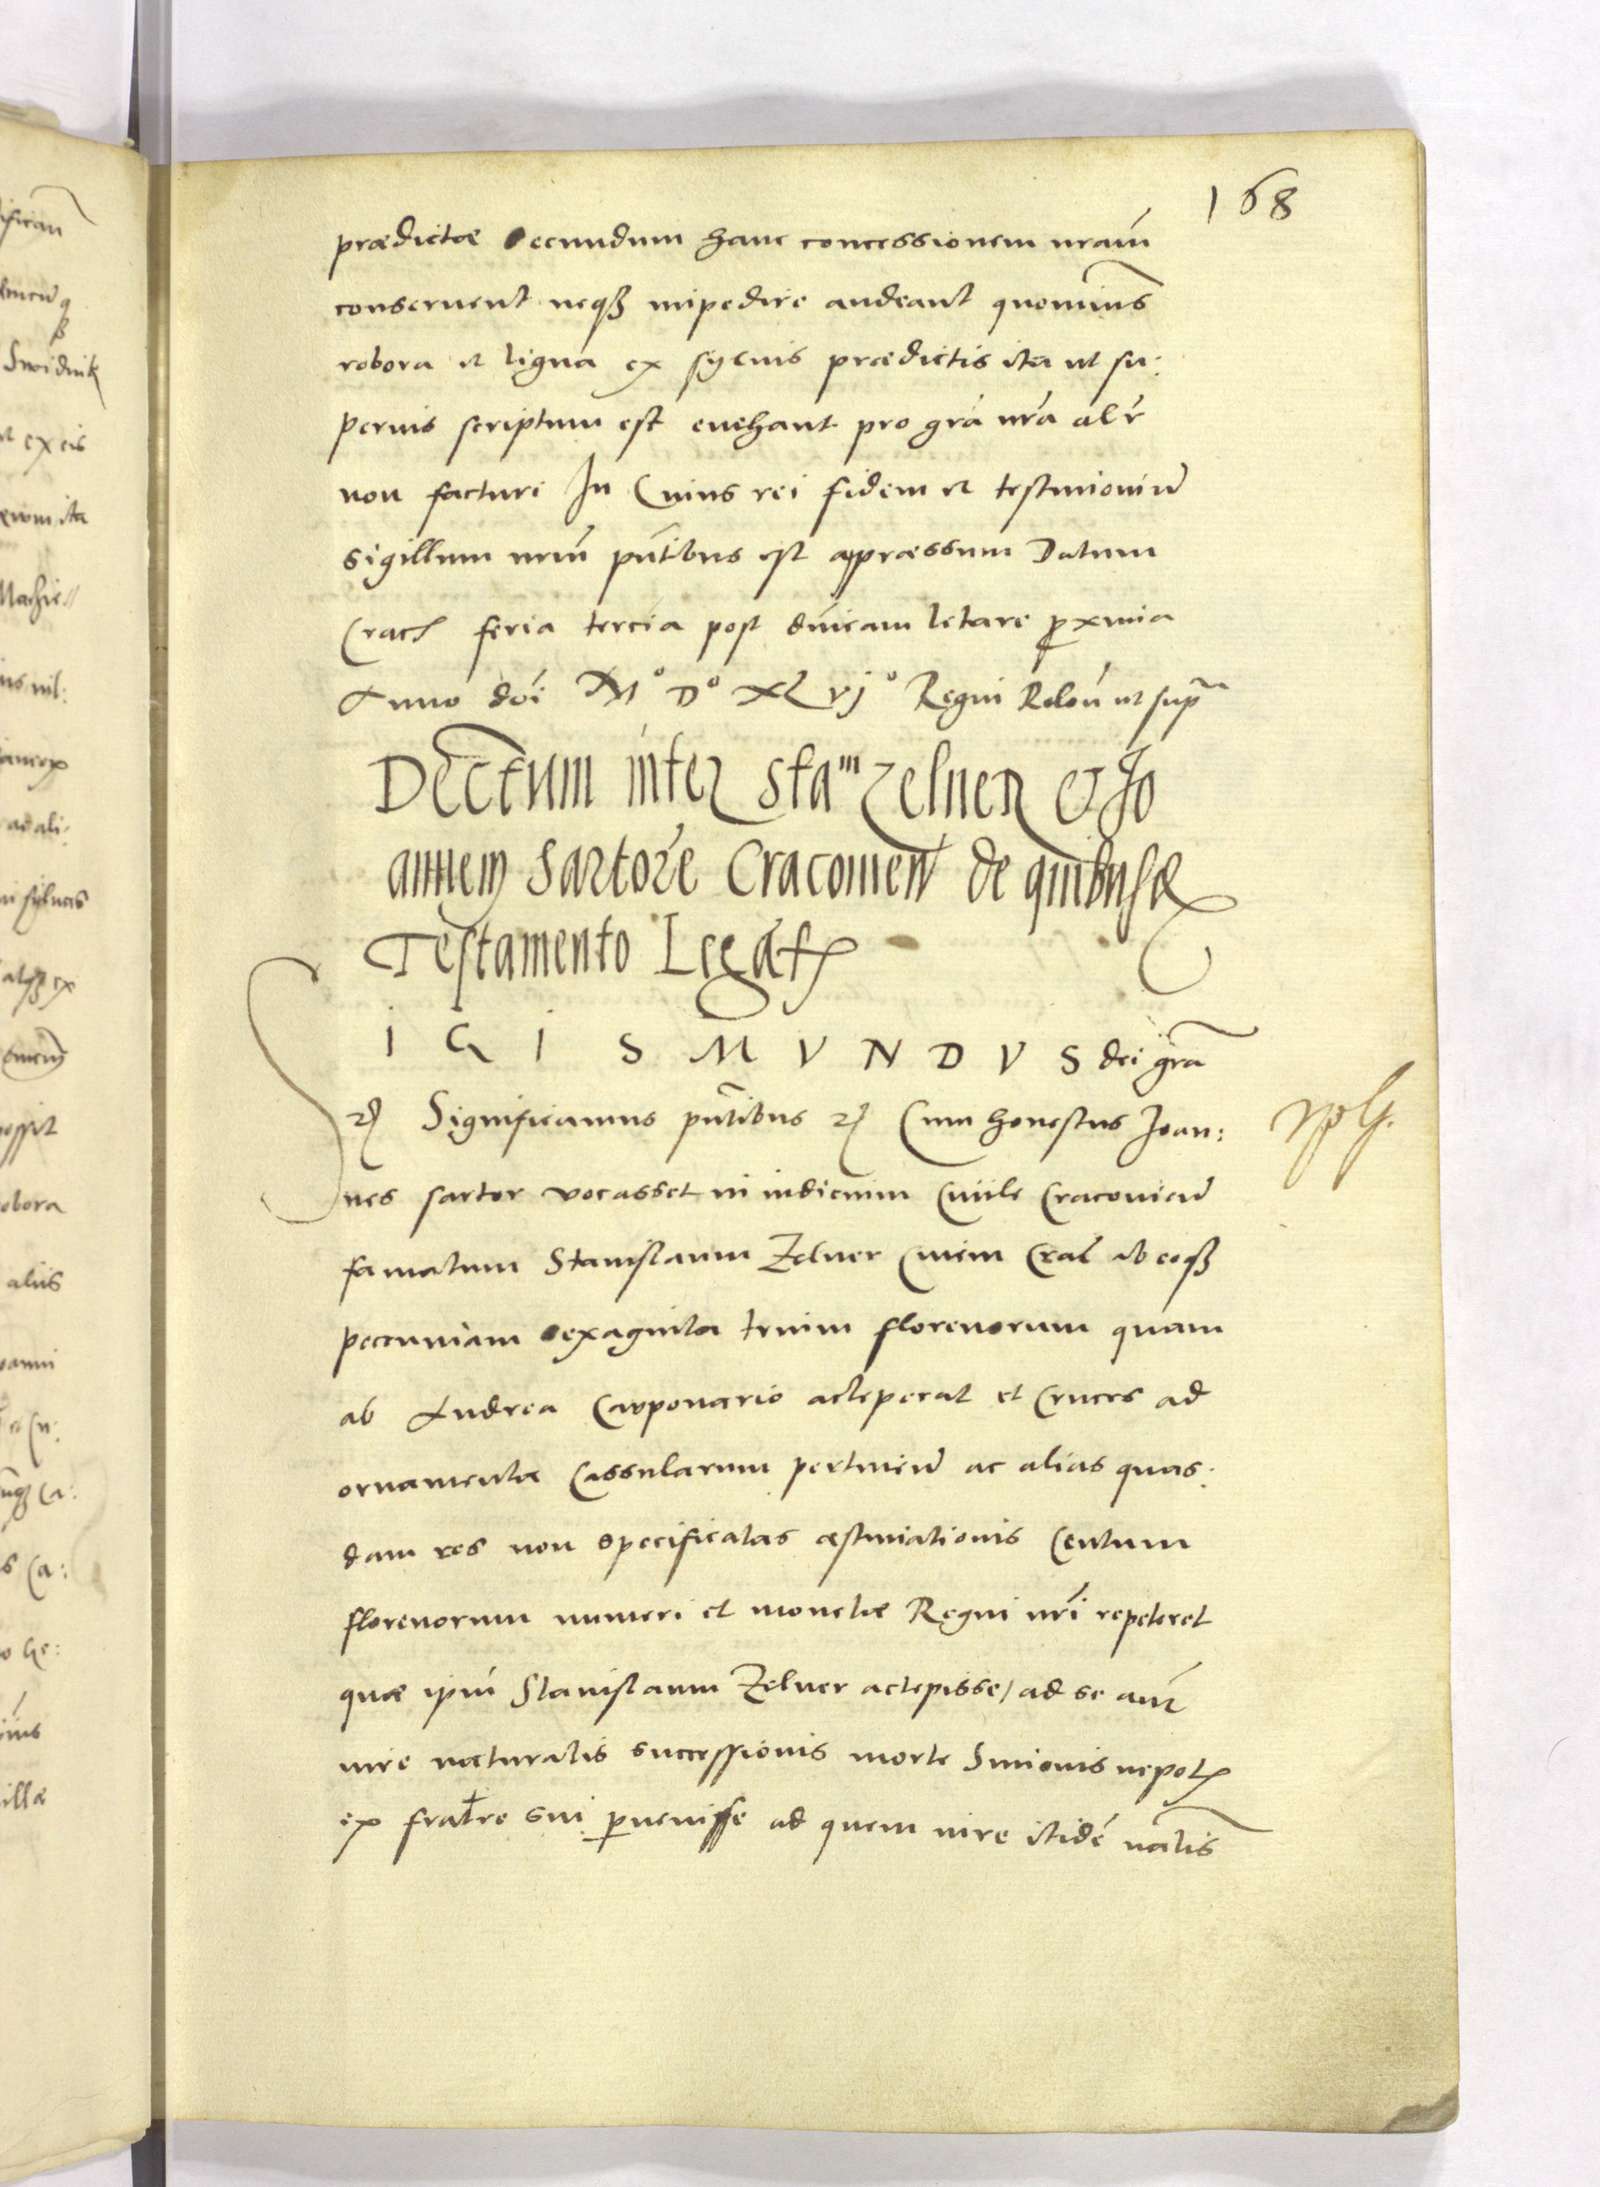 168
prædictæ secundum hanc concessionem nrãm
conseruent neqꝫ impedire audeant quominus
robora et ligna ex syluis prædictis ita ut su:
perius scriptum est euehant pro grã nrã alr̃
non facturi In Cuius rei fidem et testimoniũ
sigillum nrũm pñtibus est appræssum Datum
Crac feria tercia post dñicam letare proxima
Anno dñi Mº Dº XLvjº Regni Relõũ ut supra
Decretum inter Stam Zelner & Jo
annem Sartorẽ Cracouieñ de quibusdã
Testamento Legatꝭ
S I G I S M V N D V S dei grã
Significamus pñtibus Cum honestus Joan:
nes sartor vocasset in iudicium Ciuile Cracouieñ
famatum Stanislaum Zelner Ciuem Crac ab eoqꝫ
peccuniam sexaginta trium florenorum quam
ab Andrea Cauponario acceperat et Cruces ad
ornamenta Cassularum pertineñ ac alias quas:
dam res non specificatas æstimationis Centum
florenorum numeri et monetæ Regni nrĩ repeteret
quæ ipm̃ Stanislaum Zelner accepisse / ad se aũt
iure naturalis successionis morte Simonis nepotꝭ
ex fratre sui peruenisse ad quem iure itidẽ nãlis